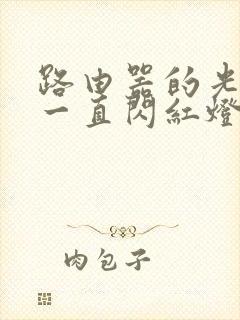 路由器的光
一直閃紅燈
肉包子